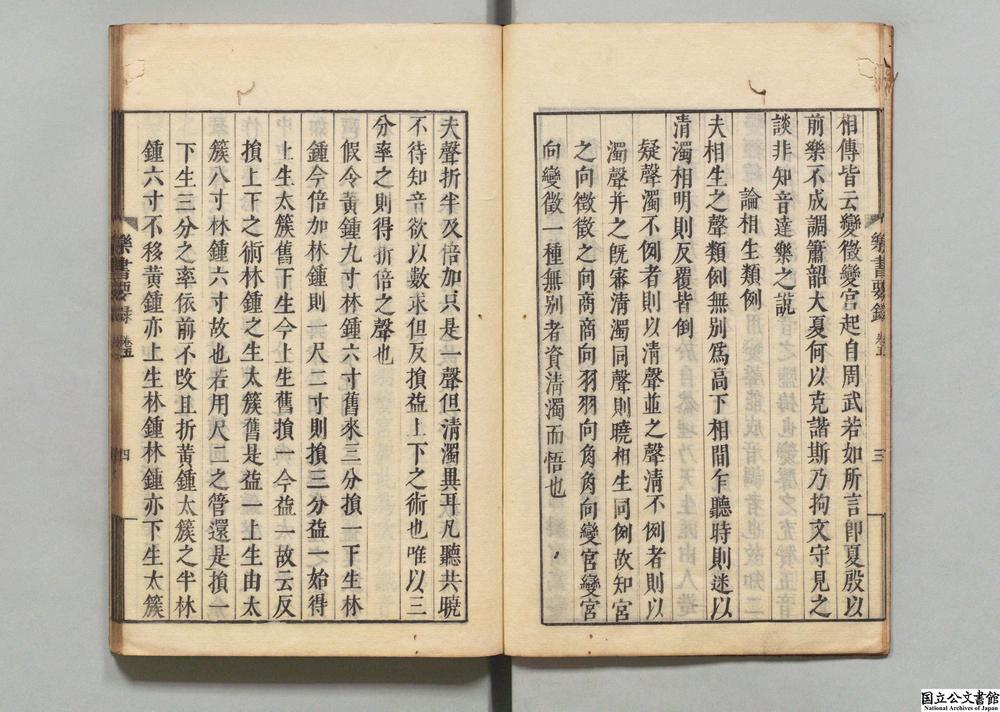 相傳皆云變徵變宮起自周武若如所言卽夏殷以
前樂不成調簫韶大夏何以克諧斯乃拘文守見之
談非知音達樂之說
論相生類例
夫相生之聲類例無別爲高下相間乍聽時則迷以
清濁相明則反覆皆倒
疑聲濁不例者則以清聲並之聲清不例者則以
濁聲并之旣審清濁同聲則曉相生同例故知宮
之向徵徵之向商商向羽羽向角角向變宮變宮
向變徵一種無別者資清濁而悟也
樂書要錄 卷五 三
夫聲折半及倍加只是一聲但清濁異耳凡聽共曉
不待知音欲以數求但反損益上下之術也唯以三
分率之則得折倍之聲也
假令黃鍾九寸林鍾六寸舊來三分損一下生林
鍾今倍加林鍾則一尺二寸則損三分益一始得
上生太簇舊下生今上生舊損一今益一故云反
損上下之術林鍾之生太簇舊是益一上生由太
簇八寸林鍾六寸故也若用尺二之管還是損一
下生三分之率依前不改且折黃鍾太簇之半林
鍾六寸不移黃鍾亦上生林鍾林鍾亦下生太簇
樂書要錄 卷五 四
国立公文書館
National Archives of Japan